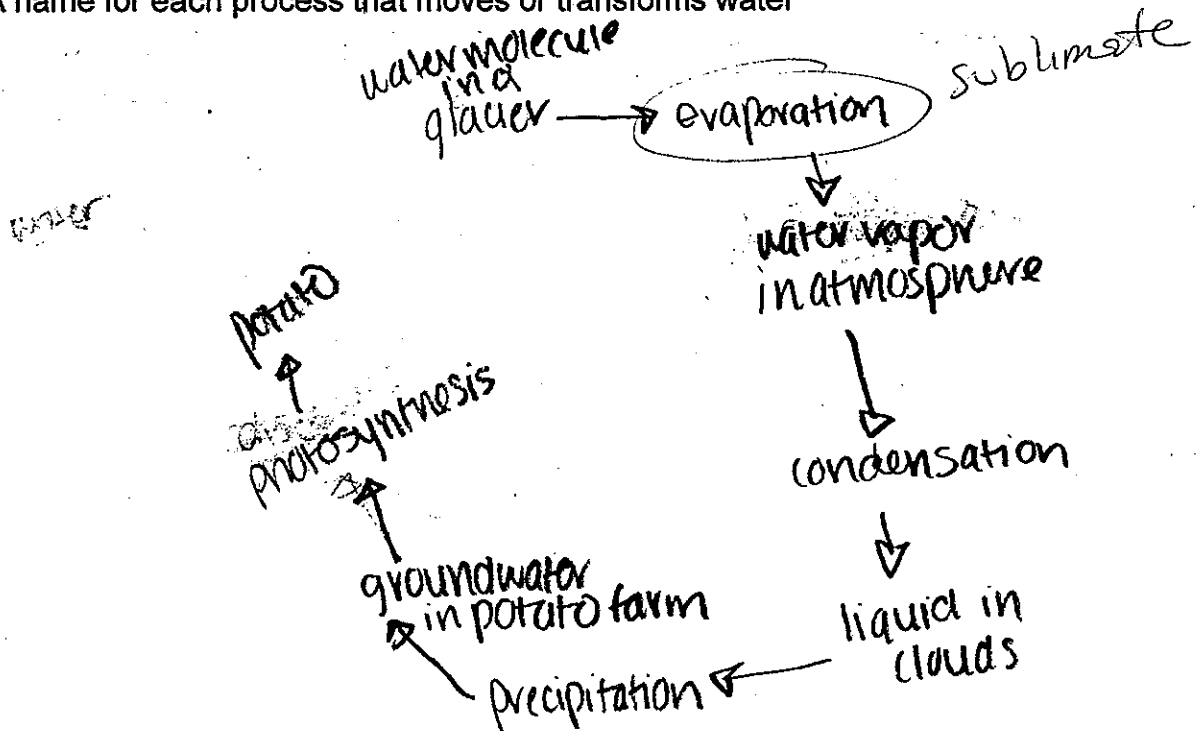 A name for each process that moves or transforms water
water molecule
in a
glacier
evaporation
sublimate
water vapor
in atmosphere
condensation
liquid in
clouds
precipitation
groundwater
in potato farm
photosynthesis
potato